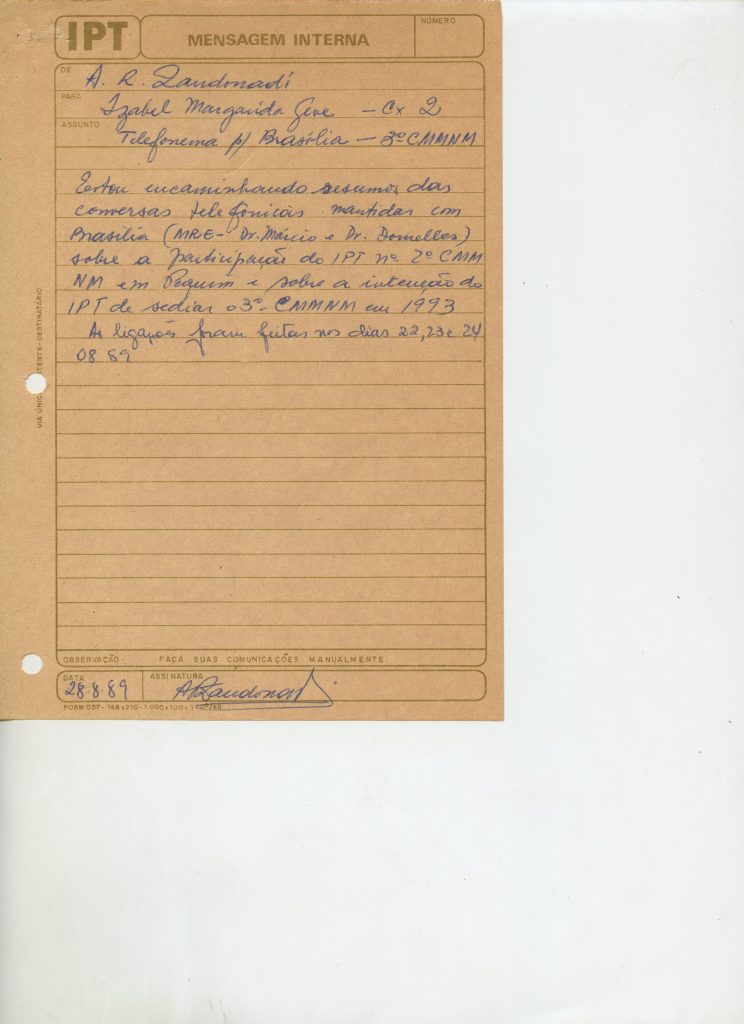 IPT
MENSAGEM INTERNA
NÚMERO
DE
A. R. Zandonadi
PARA
Izabel Margarida - Cx 2
ASSUNTO
Telefonema p/ Brasília - 3º CMMNM
Estou encaminhando resumos das
conversas telefônicas mantidas com
Brasília (MRE- Dr. Márcio e Dr. Dornelles)
sobre a participação do IPT no 2º CMM
NM em Pequim e sobre a intenção do
IPT de sediar o 3º CMMNM em 1993
As ligações foram feitas nos dias 22, 23 e 24
08 89
OBSERVAÇÃO - FAÇA SUAS COMUNICAÇÕES MANUALMENTE.
DATA
28.8.89
ASSINATURA
ARZandonadi
FORM 057 - 148x210 - 1.000x100x1